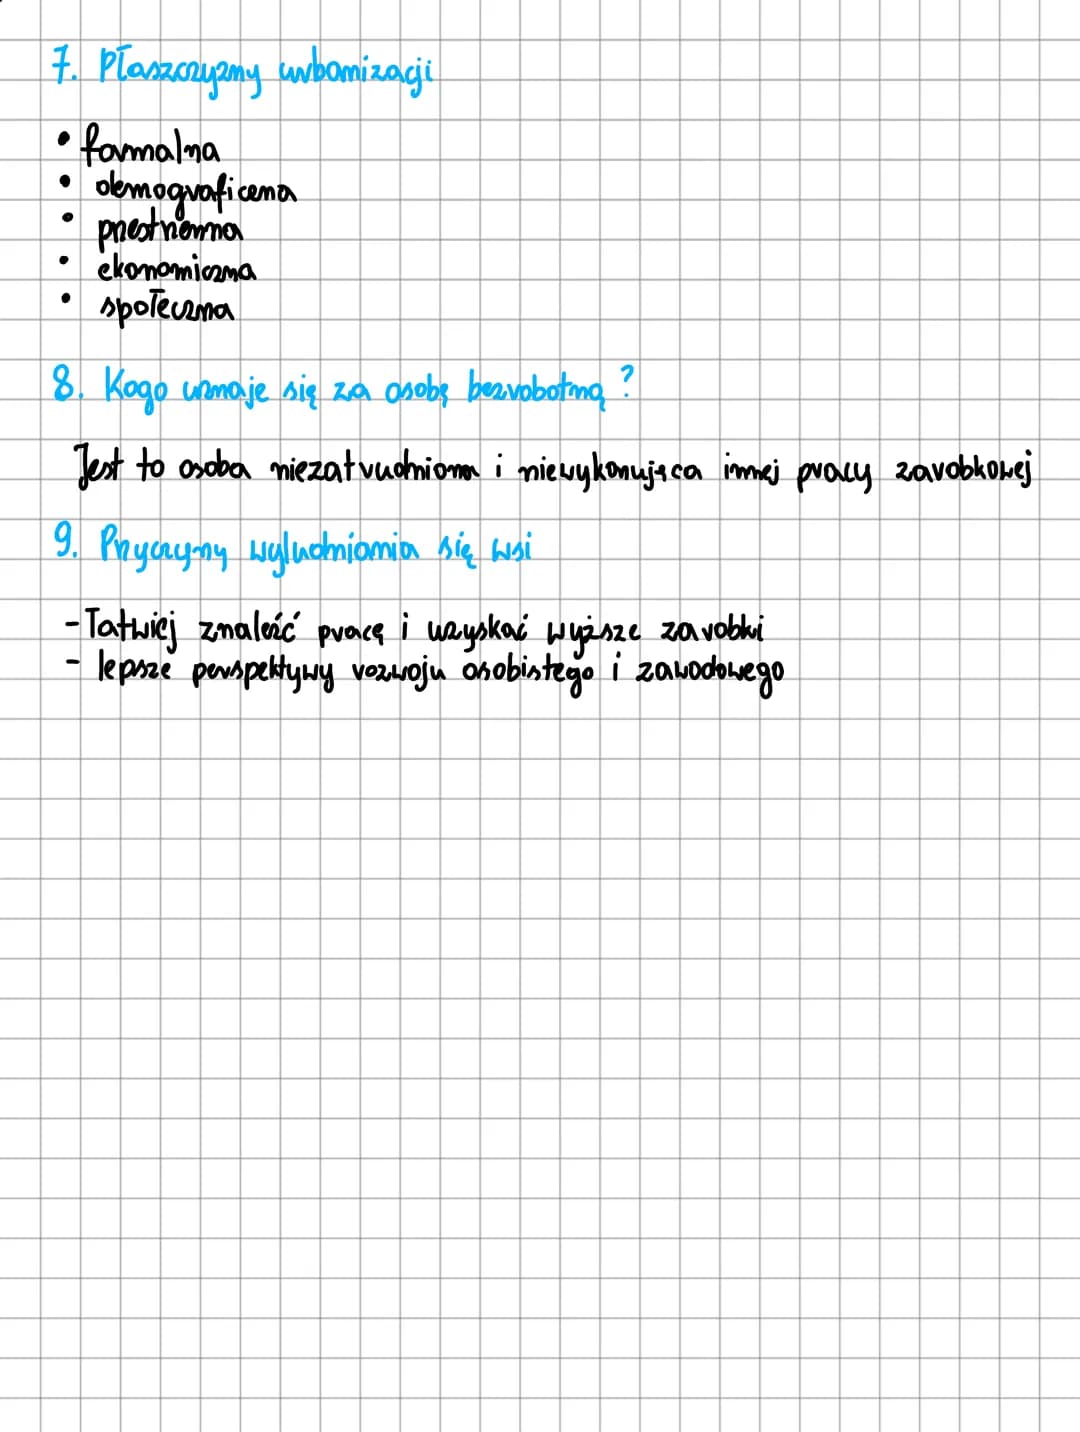 7. Płaszczyzny urbanizacji
• formalna
• demograficzna
• przestrzenna
• ekonomiczna
• społeczna
8. Kogo uznaje się za osobę bezrobotną?
Jest to osoba niezatrudniona i niewykonująca innej pracy zarobkowej
9. Przyczyny wyludniania się wsi
- łatwiej znaleźć pracę i uzyskać wyższe zarobki
- lepsze perspektywy rozwoju osobistego i zawodowego